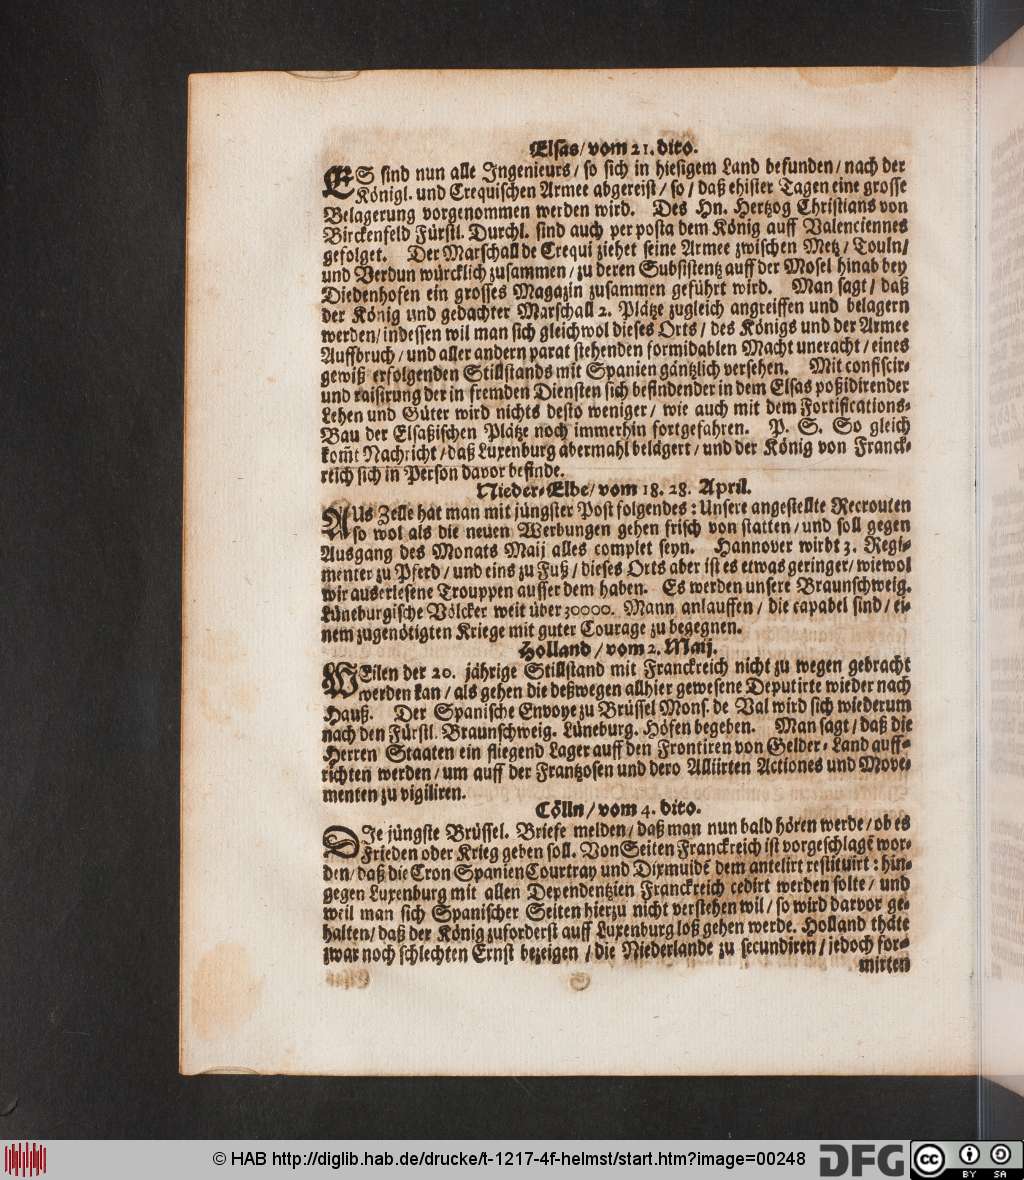 Elsas/ vom 21. dito.
ES sind nun alle Ingenieurs/ so sich in hiesigem Land befunden/ nach der
Königl. und Crequischen Armee abgereist/ so/ daß ehister Tagen eine grosse
Belagerung vorgenommen werden wird. Des Hn. Hertzog Christians von
Birckenfeld Fürstl. Durchl. sind auch per posta dem König auff Valenciennes
gefolget. Der Marschall de Crequi ziehet seine Armee zwischen Metz/ Touln/
und Verdun würcklich zusammen/ zu deren Subsistentz auff der Mosel hinab bey
Diedenhofen ein grosses Magazin zusammen geführt wird. Man sagt/ daß
der König und gedachter Marschall 2. Plätze zugleich angreiffen und belagern
werden/ indessen wil man sich gleichwol dieses Orts/ des Königs und der Armee
Auffbruch/ und aller andern parat stehenden formidablen Macht uneracht/ eines
gewiß erfolgenden Stillstands mit Spanien gäntzlich versehen. Mit confiscir-
und raisirung der in fremden Diensten sich befindender in dem Elsas poßidirender
Lehen und Güter wird nichts desto weniger/ wie auch mit dem Fortifications-
Bau der Elsaßischen Plätze noch immerhin fortgefahren. P. S. So gleich
kom̃t Nachricht/ daß Luxenburg abermahl belägert/ und der König von Franck-
reich sich in Person davor befinde.
Nieder-Elbe/ vom 18. 28. April.
AUs Zelle hat man mit jüngster Post folgendes: Unsere angestellte Recrouten
so wol als die neuen Werbungen gehen frisch von statten/ und soll gegen
Ausgang des Monats Maij alles complet seyn. Hannover wirbt 3. Regi-
menter zu Pferd/ und eins zu Fuß/ dieses Orts aber ist es etwas geringer/ wiewol
wir auserlesene Trouppen ausser dem haben. Es werden unsere Braunschweig.
Lüneburgische Völcker weit über 30000. Mann anlauffen/ die capabel sind/ ei-
nem zugenötigten Kriege mit guter Courage zu begegnen.
Holland/ vom 2. Maij.
WEilen der 20. jährige Stillstand mit Franckreich nicht zu wegen gebracht
werden kan/ als gehen die deßwegen allhier gewesene Deputirte wieder nach
Hauß. Der Spanische Envoye zu Brüssel Mons. de Val wird sich wiederum
nach den Fürstl. Braunschweig. Lüneburg. Höfen begeben. Man sagt/ daß die
Herren Staaten ein fliegend Lager auff den Frontiren von Gelder-Land auff-
richten werden/ um auff der Frantzosen und dero Alliirten Actiones und Move-
menten zu vigiliren.
Cölln/ vom 4. dito.
DIe jüngste Brüssel. Briefe melden/ daß man nun bald hören werde/ ob es
Frieden oder Krieg geben soll. Von Seiten Franckreich ist vorgeschlagẽ wor-
den/ daß die Cron Spanien Courtray und Dixmuidẽ dem antelirt restituirt: hin-
gegen Luxenburg mit allen Dependentzien Franckreich cedirt werden solte/ und
weil man sich Spanischer Seiten hierzu nicht verstehen wil/ so wird darvor ge-
halten/ daß der König zuforderst auff Luxenburg loß gehen werde. Holland thäte
zwar noch schlechten Ernst bezeigen/ die Niederlande zu secundiren/ jedoch for-
mirten
© HAB http://diglib.hab.de/drucke/t-1217-4f-helmst/start.htm?image=00248
DFG
cc BY SA